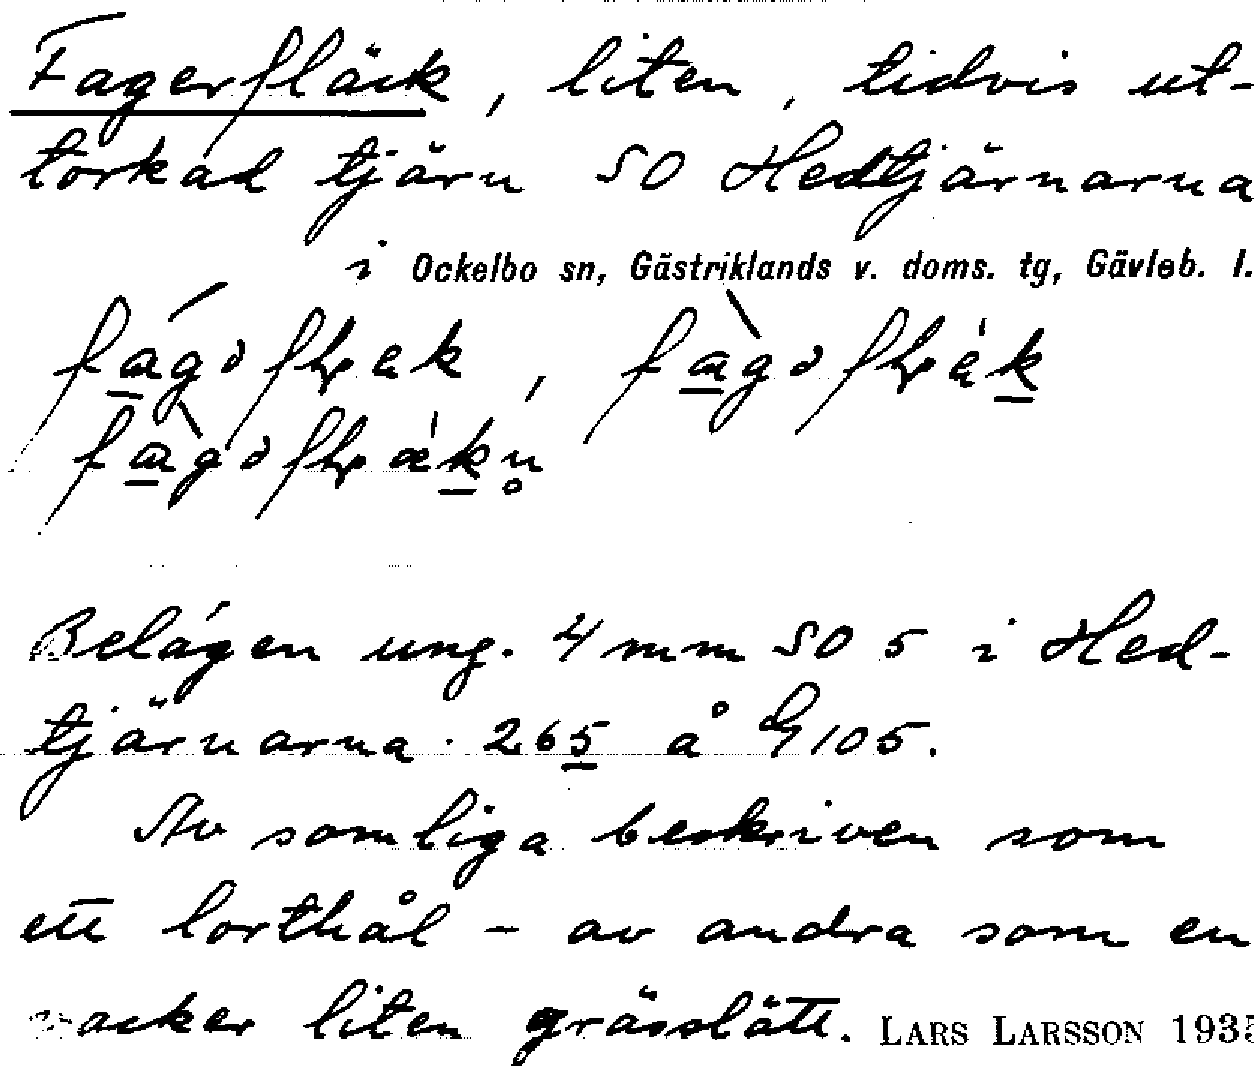 Fagerfläck, liten, tidvis ut-
torkad tjärn SO Hedtjärnarna
i Ockelbo sn, Gästriklands v. doms. tg, Gävleb. l.
Belägen ung. 4 mm SO 5 i Hed-
tjärnarna 265 å G 105.
Av somliga beskriven som
ett lorthål - av andra som en
vacker liten grässlätt. LARS LARSSON 1935